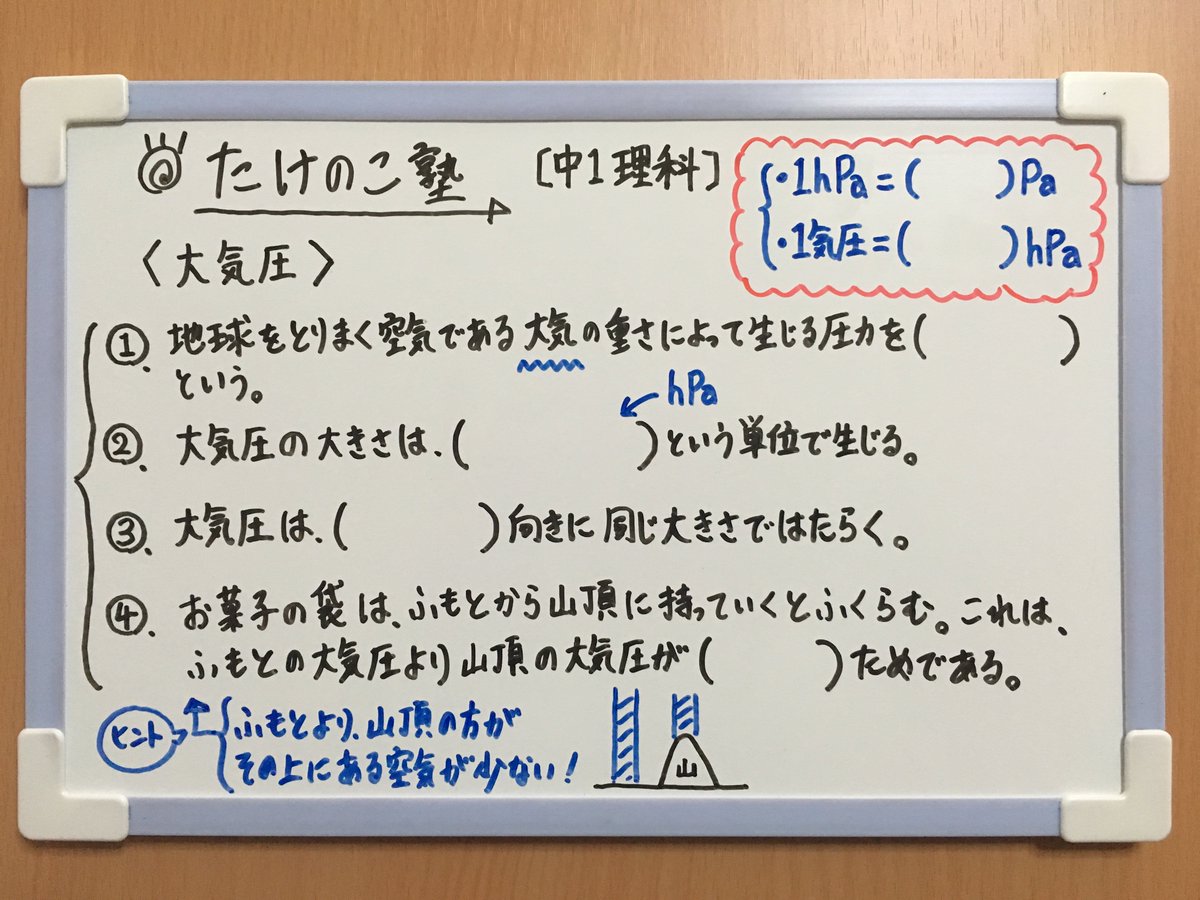 たけのこ塾 [中1理科]
・1hPa=( )Pa
・1気圧=( )hPa
〈大気圧〉
①. 地球をとりまく空気である大気の重さによって生じる圧力を( )
という。
hPa
②. 大気圧の大きさは、( )という単位で生じる。
③. 大気圧は、( )向きに同じ大きさではたらく。
④. お菓子の袋は、ふもとから山頂に持っていくとふくらむ。これは、
ふもとの大気圧より山頂の大気圧が( )ためである。
ヒント
ふもとより、山頂の方が
その上にある空気が少ない!
山